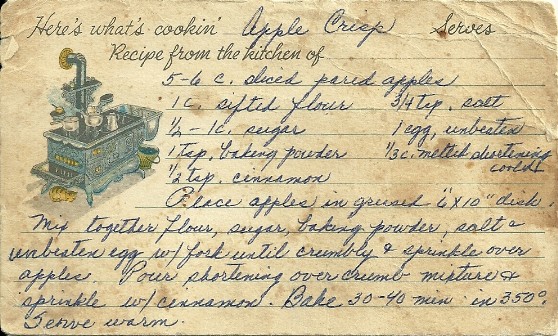 Here's what's cookin' Apple Crisp Serves
Recipe from the kitchen of
5-6 c. diced pared apples
1 c. sifted flour 3/4 tsp. salt
1/2 - 1 c. sugar 1 egg, unbeaten
1 tsp. baking powder 1/3 c. melted shortening
1/2 tsp. cinnamon cooled
Place apples in greased 6"x10" dish.
Mix together flour, sugar, baking powder, salt &
unbeaten egg w/ fork until crumbly & sprinkle over
apples. Pour shortening over crumb mixture &
sprinkle w/ cinnamon. Bake 30-40 min. in 350°.
Serve warm.